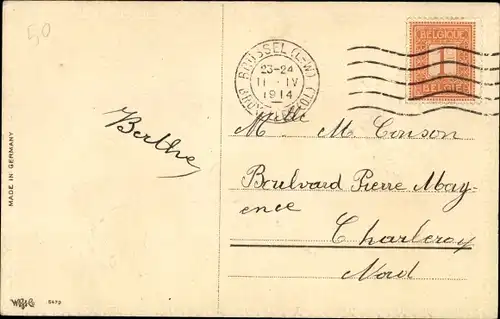 5,0
BELGIQUE
1
BELGIË
BRUSSEL (L-W)
23-24
11 IV
1914
Melle
M. M. Conson
Berthe
Boulvard Pierre May-
ence
Charleroy
Nord
MADE IN GERMANY
W.B.&C 5473